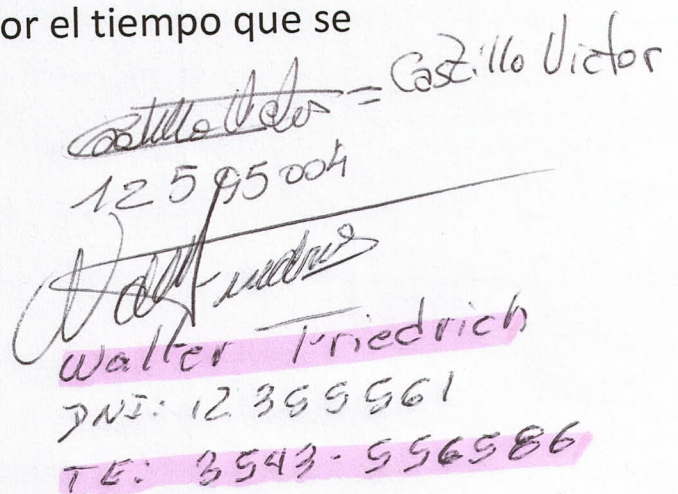 or el tiempo que se
Castillo Victor = Castillo Victor
12595004
Walter Friedrich
DNI: 12355561
TE: 3543-556586